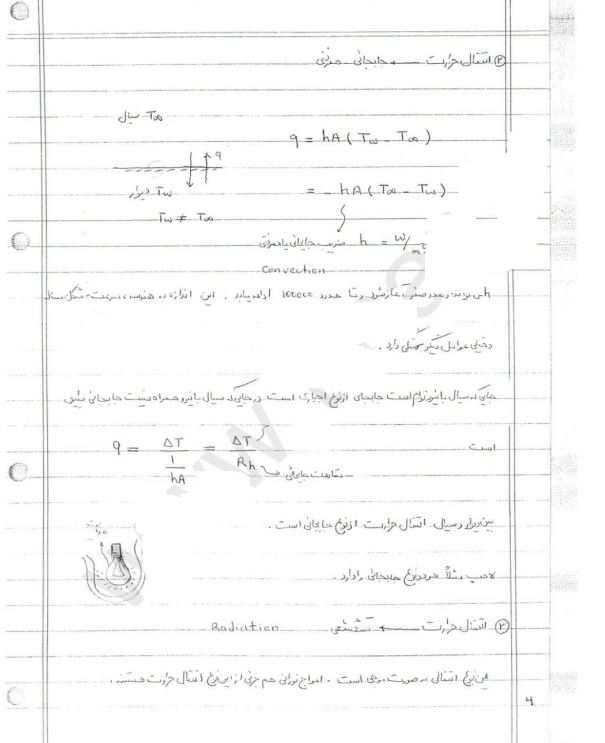 ② انتقال حرارت ← جابجائی همرفتی
سیال T∞
q = hA ( Tω - T∞ )
q
دیوار Tω
= - hA ( T∞ - Tω )
Tω ≠ T∞
ضریب جابجائی یا همرفتی h = w/m²
Convection
h می تواند از عدد صفر آغاز شود و تا حدود 100000 ادامه یابد . این اندازه به هندسه ، سرعت ، شکل
و خیلی عوامل دیگر بستگی دارد .
جایی که سیال با نیرو توام است جابجای از نوع اجباری است در جایی که سیال با نیرو همراه نیست جابجائی طبیعی
است
q = ΔT / (1/hA) = ΔT / Rh
مقاومت جابجائی
بین دیوار و سیال انتقال حرارت از نوع جابجائی است .
لامپ مثلاً هر دو نوع جابجائی را دارد .
③ انتقال حرارت ← تشعشعی Radiation
این نوع انتقال به صورت موجی است . امواج نورانی هم جزئی از این نوع انتقال حرارت هستند .
4